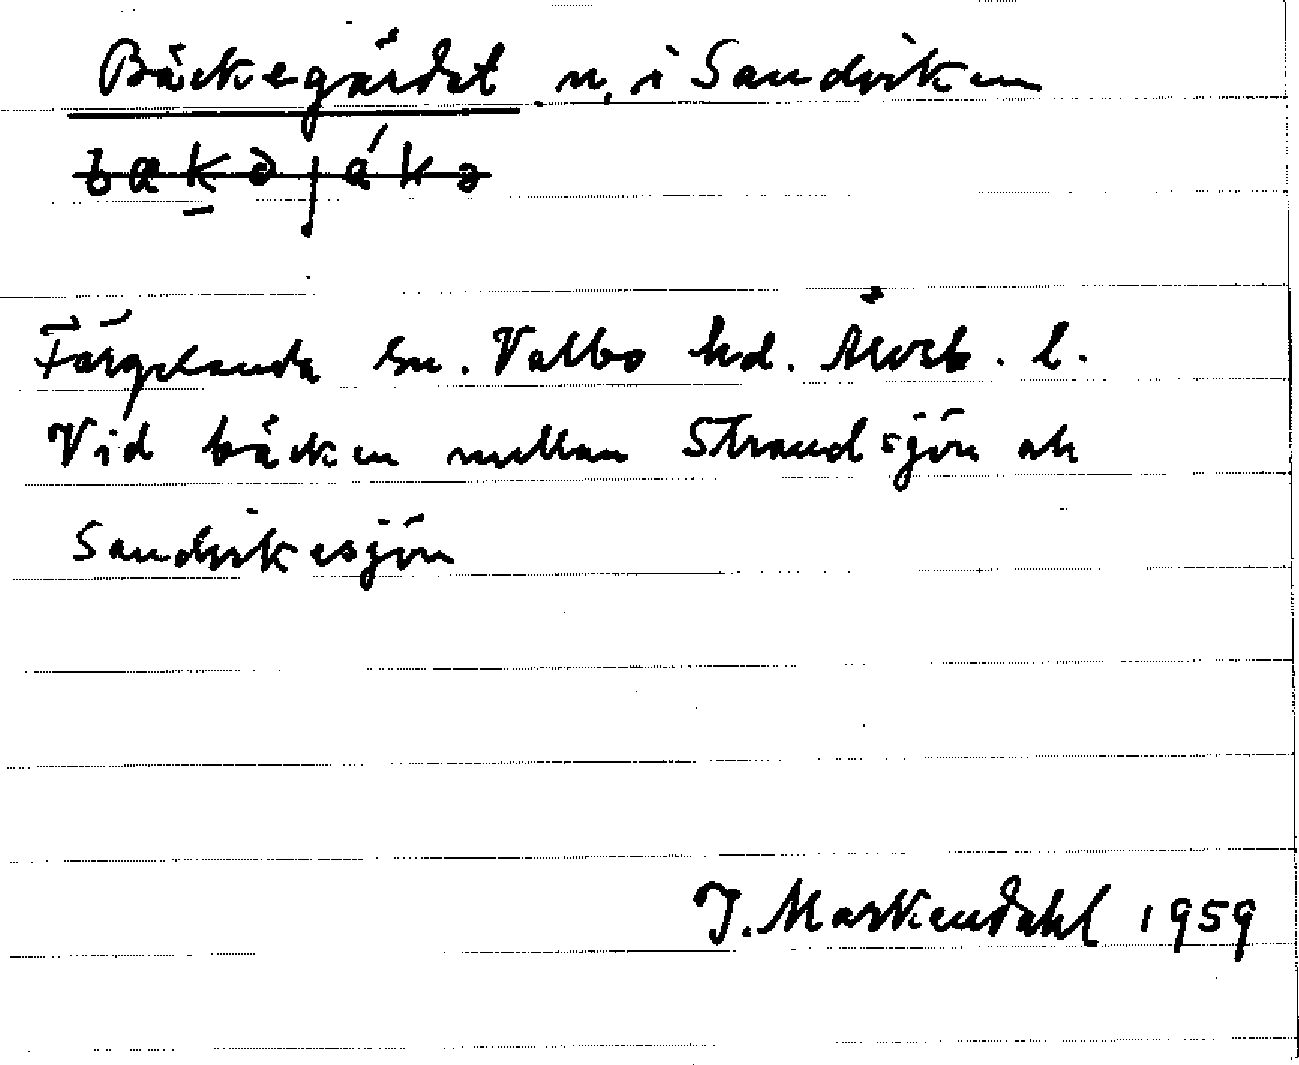 Bäckegärdet n, i Sandviken
Färgelanda sn. Valbo hd. Älvsb. l.
Vid bäcken mellan Strandsjön och
Sandvikesjön
J. Markendahl 1959